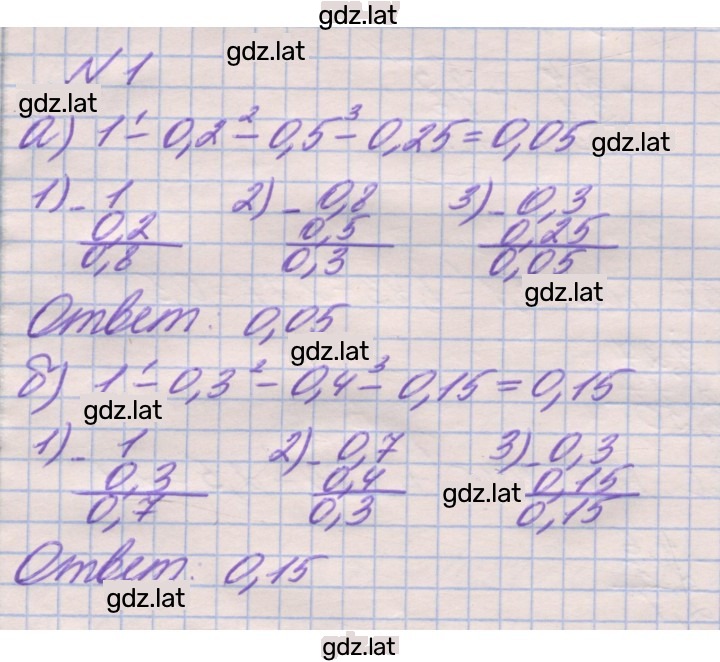 gdz.lat
gdz.lat
N 1
gdz.lat
а) 1 -¹ 0,2 -² 0,5 -³ 0,25 = 0,05 gdz.lat
1) - 1 2) - 0,8 3) - 0,3
0,2 0,5 0,25
0,8 0,3 0,05
gdz.lat
Ответ: 0,05
gdz.lat
б) 1 -¹ 0,3 -² 0,4 -³ 0,15 = 0,15
gdz.lat
1) - 1 2) - 0,7 3) - 0,3
0,3 0,4 gdz.lat 0,15
0,7 0,3 0,15
Ответ: 0,15
gdz.lat
gdz.lat